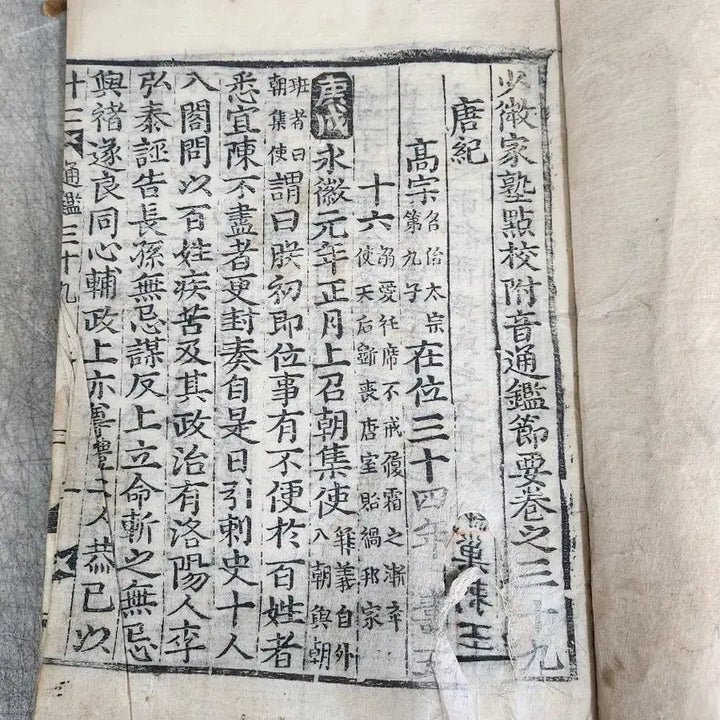 少微家塾點校附音通鑑節要卷之三十九
唐紀
高宗名治太宗第九子在位三十四年壽五
十六溺愛衽席不戒履霜之漸卒使天后斵喪唐室貽禍邦家
庚戌永徽元年正月上召朝集使彛義自外入朝與朝
班者曰朝集使謂曰朕初即位事有不便於百姓者
悉宜陳不盡者更封奏自是日引刺史十人
入閤問以百姓疾苦及其政治有洛陽人李
弘泰誣告長孫無忌謀反上立命斬之無忌
與褚遂良同心輔政上亦尊禮二人恭己以
十二 通鑑三十九 一